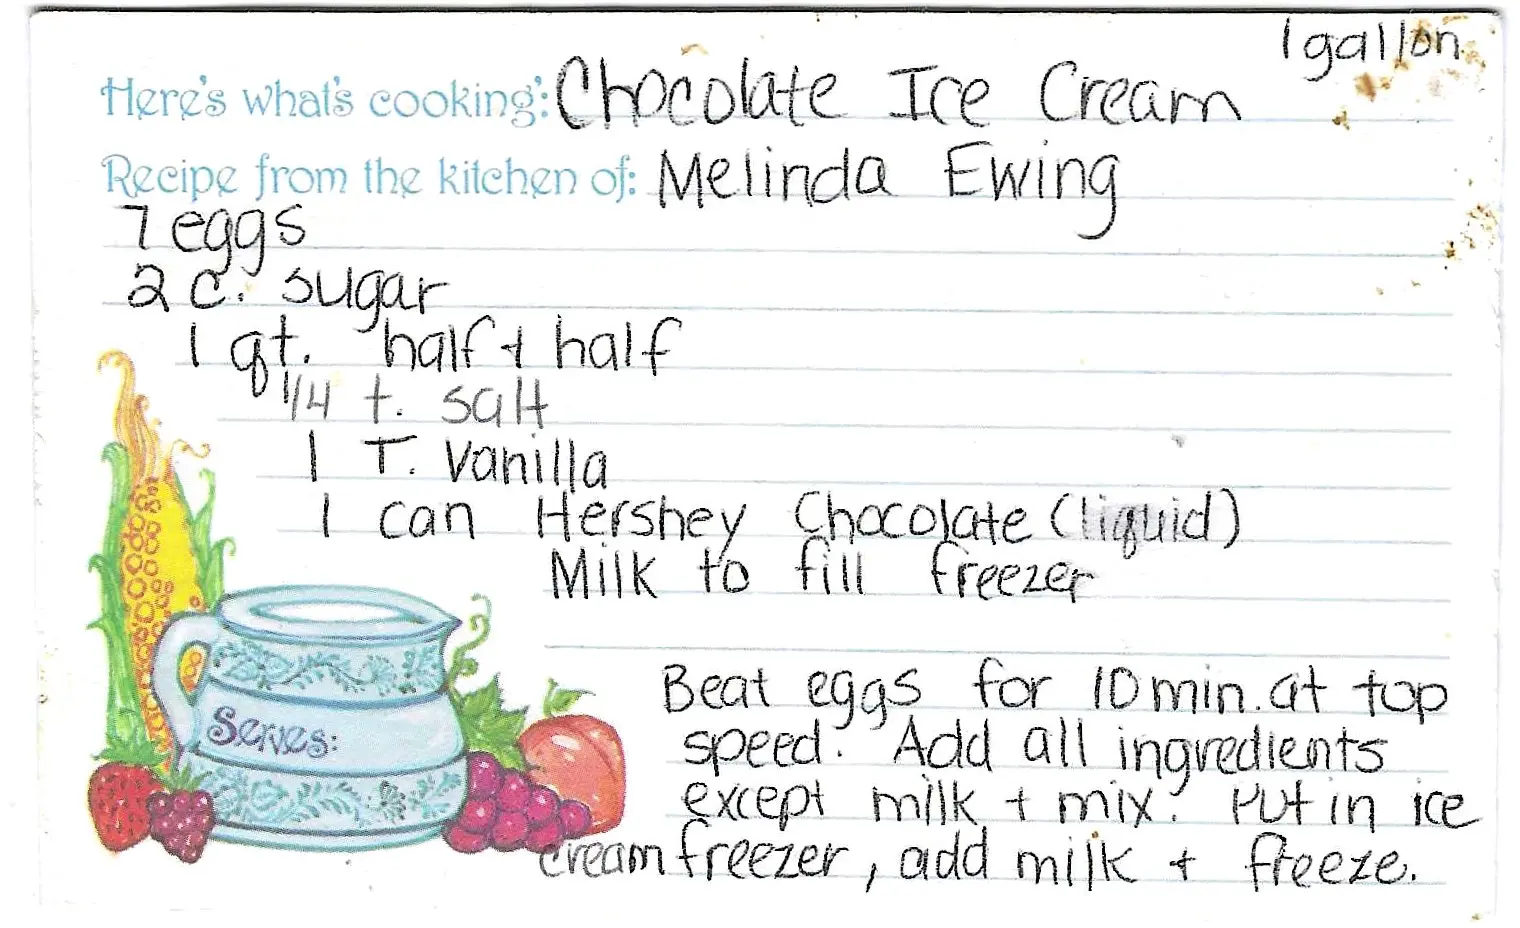 1 gallon
Here's what's cooking: Chocolate Ice Cream
Recipe from the kitchen of: Melinda Ewing
7 eggs
2 c. sugar
1 qt. half + half
1/4 t. salt
1 T. Vanilla
1 can Hershey Chocolate (liquid)
Milk to fill freezer
Serves:
Beat eggs for 10 min. at top
speed. Add all ingredients
except milk + mix. Put in ice
cream freezer, add milk + freeze.